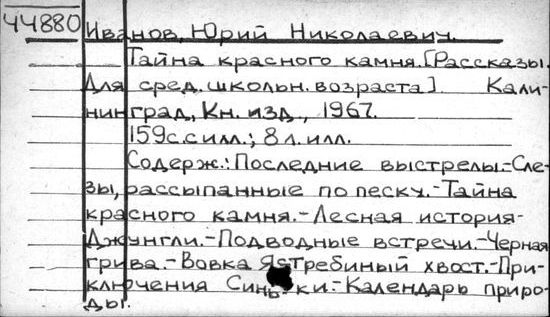 44880 Иванов, Юрий Николаевич.
Тайна красного камня. [Рассказы.
Для сред. школьн. возраста]. Кали-
нинград, Кн. изд., 1967.
159с. с илл.; 8 л. илл.
Содерж.: Последние выстрелы.-Сле-
зы, рассыпанные по песку.-Тайна
красного камня.-Лесная история-
Джунгли.-Подводные встречи.-Черная
грива.-Вовка Ястребиный хвост.-При-
ключения .-Календарь приро-
ды.